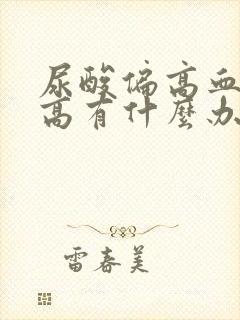 尿酸偏高血
高有什麼办
雷春美